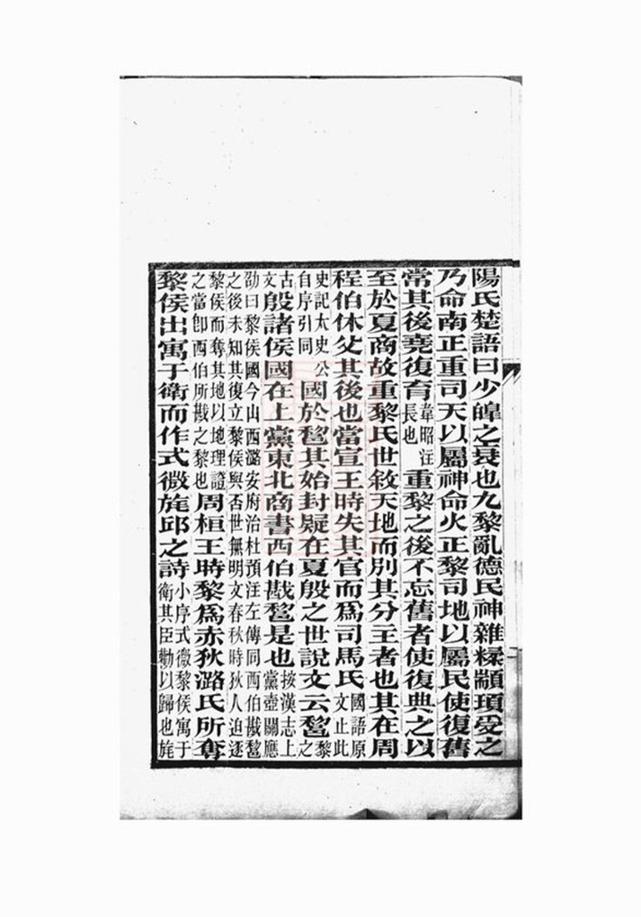 陽氏楚語曰少皥之衰也九黎亂德民神雜糅顓頊受之
乃命南正重司天以屬神命火正黎司地以屬民使復舊
常其後堯復育韋昭注長也重黎之後不忘舊者使復典之以
至於夏商故重黎氏世敘天地而別其分主者也其在周
程伯休父其後也當宣王時失其官而爲司馬氏國語原文止此
史記太史公自序引同國於𨛫其始封疑在夏殷之世說文云𨛫黎之
古文殷諸侯國在上黨東北商書西伯戡𨛫是也按漢志上黨壺關應
劭曰黎侯國今山西潞安府治杜預注左傳同西伯戡𨛫
之後未知其復立黎侯與否世無明文春秋時狄人迫逐
黎侯而奪其地以地理證之當卽西伯所戡之黎也周桓王時黎爲赤狄潞氏所奪
黎侯出寓于衛而作式微旄邱之詩小序式微黎侯寓于衛其臣勸以歸也旄